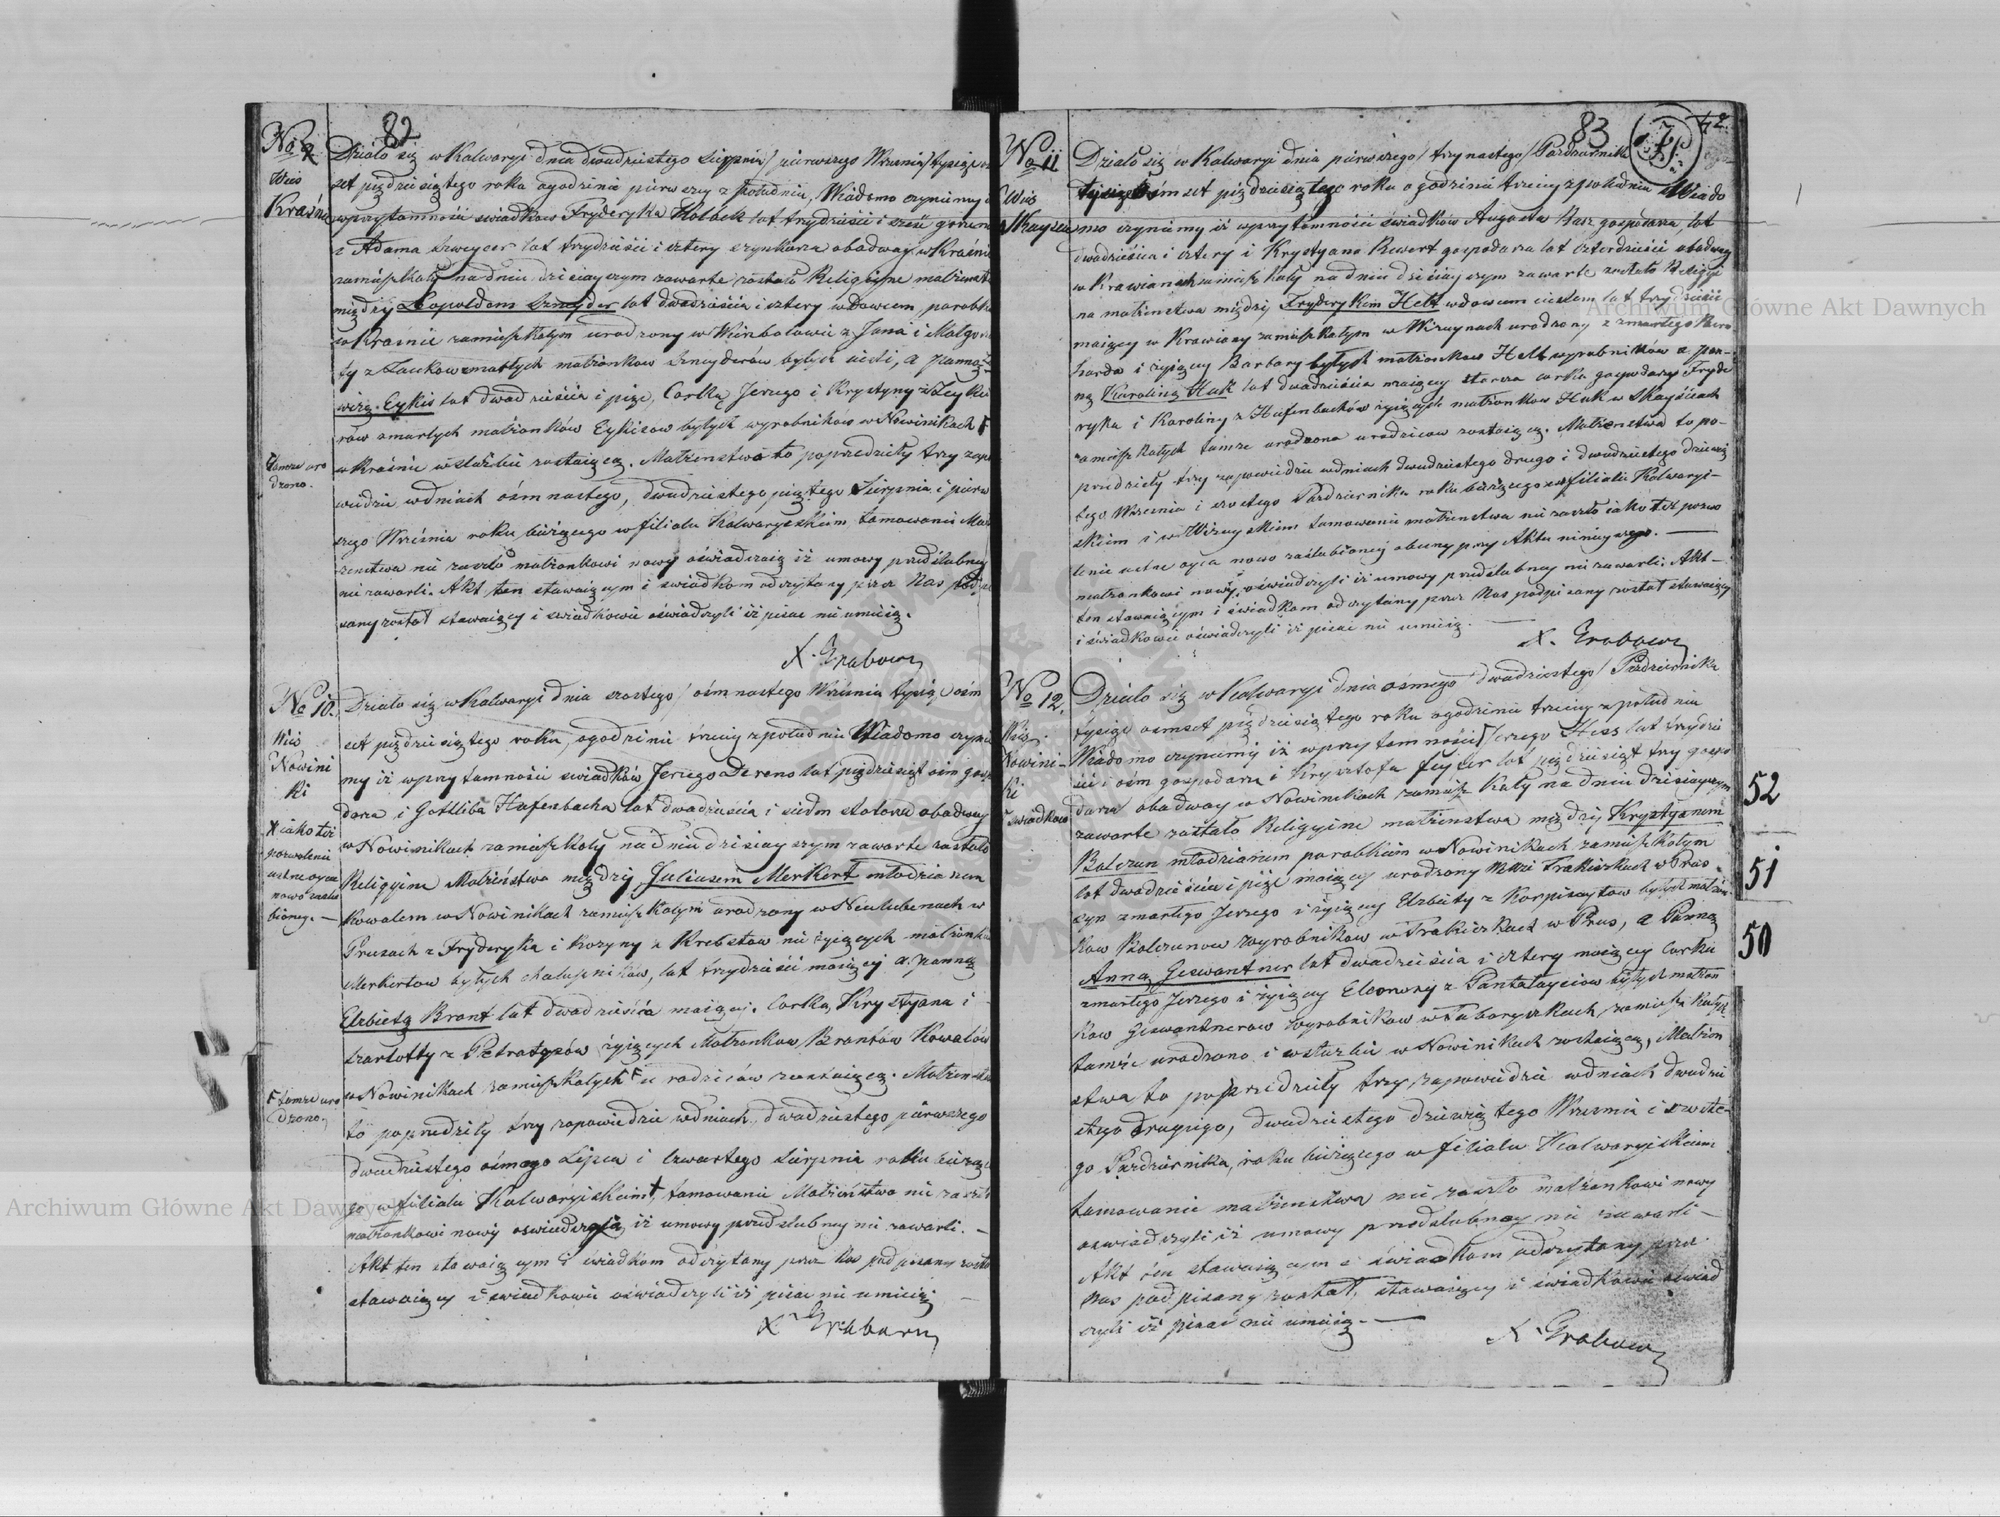 82
No 9
Wieś
Kraśna
Działo się w Kalwaryi dnia dwudziestego Sierpnia / pierwszego Września / tysiąc
set pięćdziesiątego roku o godzinie pierwszy z południa, Wiadomo czyniemy
w przytomności świadkow Fryderyka lat trydzieści i sześć
i Adama Szweycer lat trydzieści i cztery szynkarza obadwaj w Kraśnie
zamieszkały na dniu dzisiayszym zawarte zostało Religijne małżeństwo
między Leopoldem Sznyder lat dwadzieścia i cztery wdowcem, parobkiem
w Kraśnie zamieszkałym urodzony w z Jana i Małgorza
ty z zmarłych małżonkow Sznyderów byłych a panną
Eykis lat dwadzieścia i pięć, Corką Jerzego i Krystyny z
rów zmarłych małżonków Eykisow byłych wyrobników w Nowinikach F
w Kraśnie w służbie zostaiącą. Małżeństwo to poprzedziły trzy zapo
wiedzie w dniach ośmnastego, dwudziestego piątego Sierpnia i pierw
szego Wrześnie roku bieżącego w filiale Kalwaryiskim tamowanie Mał
żenstwa nie zaszło małżonkowi nowy oświadczaią iż umowy przedślubney
nie zawarli. Akt ten stawaiącym i świadkom odczytany przez Nas podpi
sany został stawaiący i świadkowie oświadczyli iż pisać nie umieią.
F tamże uro
dzono.
X. Grabow
No 10.
Wieś
Nowini
ki
Działo się w Kalwaryi dnia szostego / ośmnastego Wrześnie tysiąc ośm
set pięćdziesiątego roku, o godzinie trzeciy z południa Wiadomo czynie
my iż w przytomności świadków Jerzego lat pięćdziesiąt ośm gospo
darza i Gottliba Hafenbacha lat dwadzieścia i siedm stolarza obadway
w Nowinikach zamieszkały na dniu dzisiayszym zawarte zostało
Religijne Małżeństwo między Juliusem Merkert młodzianem
Kowalem w Nowinikach zamieszkałym urodzony w w
Prusach z Fryderyka i Rozyny z nie żyiących małżonkow
Merkertow byłych chałupników, lat trzydzieści maiący a panną
Elzbietą Brant lat dwadzieścia maiącą. Corką Krystyana i
Szarlotty z żyiących Małżonkow Brantów Kowalów
w Nowinikach zamieszkałych F u rodziców zostaiącą. Małżenstwo
to poprzedziły trzy zapowiedzie w dniach dwudziestego pierwszego
dwudziestego ośmego Lipca i Czwartego Sierpnia roku bieżące
go w filiale Kalwaryiskim +, tamowanie Małżeństwa nie zaszło
małżonkowi nowy oświadczaią iż umowy przedślubney nie zawarli. —
Akt ten stawaiącym i świadkom odczytany przez Nas podpisany został
stawaiący i świadkowie oświadczyli iż pisać nie umieią —
X iako też
pozwolenie
ustne oyca
nowo zaślu
bioney. —
F tamże uro
dzono,
X. Grabow
83
42.
No 11
Wieś
Działo się w Kalwaryi dnia pierwszego / trzynastego / Pazdziernika
tysiąc ośmset pięćdziesiątego roku o godzinie trzeciy z południa Wiado
mo czyniemy iż w przytomności świadków Augusta gospodarza lat
dwadzieścia i cztery i Krystyana gospodarza lat czterdzieści obadway
w zamieszkały na dniu dzisiayszym zawarte zostało Religij
na małżenstwo między Fryderykiem Helt wdowcem cieslem lat trydzieści
maiący w zamieszkałym w urodzony z zmarłego Bern
harda i żyiącey Barbary byłych małżonkow Helt wyrobników a pan-
ną Karoliną Huk lat dwadzieścia maiącą starsza corką gospodarzy Fryde
ryka i Karoliny z Hafenbachów żyiących małżonkow Huk w
zamieszkałych tamże urodzona u rodzicow zostaiącą. Małżenstwo to po-
przedziły trzy zapowiedzie w dniach dwudziestego drugiego i dwudziestego dziewią
tego Wrzesnia i szostego Pazdziernika roku bieżącego w filiale Kalwaryi-
skiem i w tamowanie małżenstwa nie zaszło iako też pozwo
lenie ustne oyca nowo zaślubionej obecny przy Aktu ninieyszego. —
małżonkowi nowy, oświadczyli iż umowy przedślubney nie zawarli. Akt —
ten stawaiącym i świadkom odczytany przez Nas podpisany został stawaiący
i świadkowie oświadczyli iż pisać nie umieią. —
X. Grabow
No 12.
Wieś
Nowini-
ki
świadkow
Działo się w Kalwaryi dnia ośmego / dwudziestego / Pazdziernika
tysiąc osmset pięćdziesiątego roku o godzinie trzeciy z południa
Wiadomo czyniemy iż w przytomności Jerzego Hess lat trydzie
ści i ośm gospodarza i Krysztofa lat pięćdziesiąt trzy gospo
darza obadway w Nowinikach zamieszkały na dniu dzisiayszym
zawarte zostało Religijne małżenstwo między Krystyanem
Balczun młodzianem parobkiem w Nowinikach zamieszkałym
lat dwadzieścia i pięć maiący urodzony we wsi Trakiszkach w Prus
syn zmarłego Jerzego i żyiącey Elzbiety z byłych małżon
kow Balczunow wyrobników w Trakiszkach w Prus, a Panną
Anną Geswantner lat dwadzieścia i cztery maiącą Corką
zmarłego Jerzego i żyiącey Eleonory z byłych małżon
kow Geswantnerow wyrobnikow w zamieszkałych
tamże urodzono i w służbie w Nowinikach zostaiącą, Małżen
stwa to poprzedziły trzy zapowiedzie w dniach dwudzie
stego drugiego, dwudziestego dziewiątego Wrzesnia i szoste-
go Pazdziernika, roku bieżącego w filiale Kalwaryiskiem
tamowanie małżenstwa nie zaszło małżonkowi nowy
oświadczyli iż umowy przedślubney nie zawarli —
Akt ten stawaiącym i świadkom odczytany przez
Nas podpisany został, stawaiący i świadkowie oświad
czyli iż pisać nie umieią. —
X. Grabow
52
51
50
Archiwum Główne Akt Dawnych
Archiwum Główne Akt Dawnych